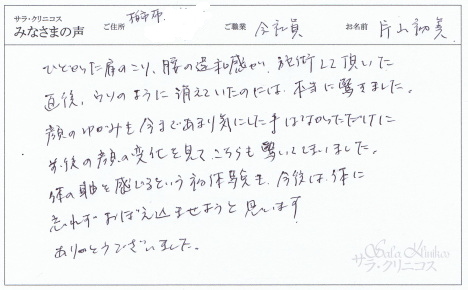 サラ・クリニコス
みなさまの声
ご住所 柏市
ご職業 会社員
お名前 片山初美
ひどかった肩のこり、腰の違和感が、施術して頂いた
直後、ウソのように消えていたのには、本当に驚きました。
顔のゆがみを今まであまり気にした事はなかっただけに
前後の顔の変化を見て、こちらも驚いてしまいました。
体の軸を感じるという初体験も、今後は、体に
忘れずおぼえ込ませようと思います!
ありがとうございました。
Sala Klinikos
サラ・クリニコス